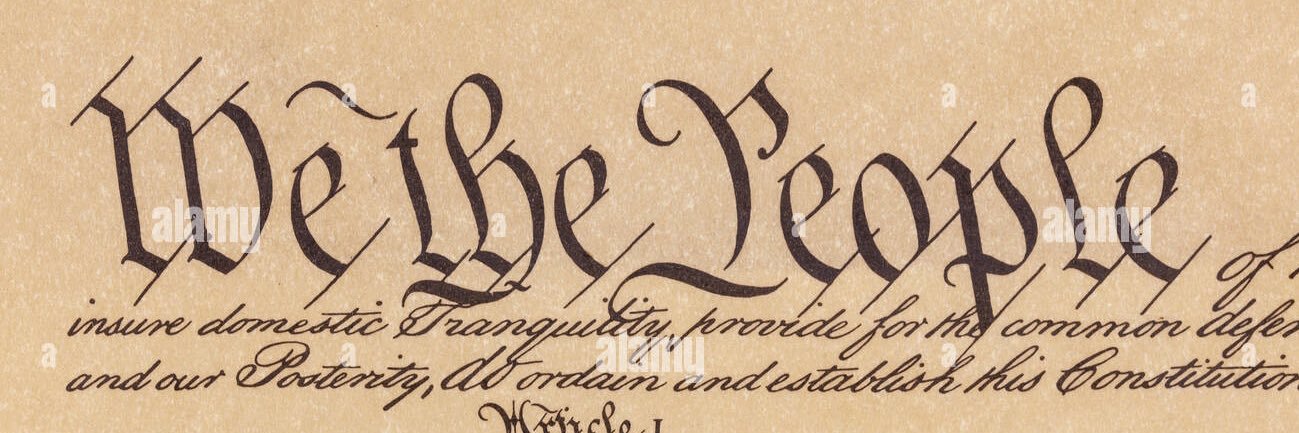 We the People of
insure domestic Tranquility, provide for the common defen
and our Posterity, do ordain and establish this Constitution
Article I